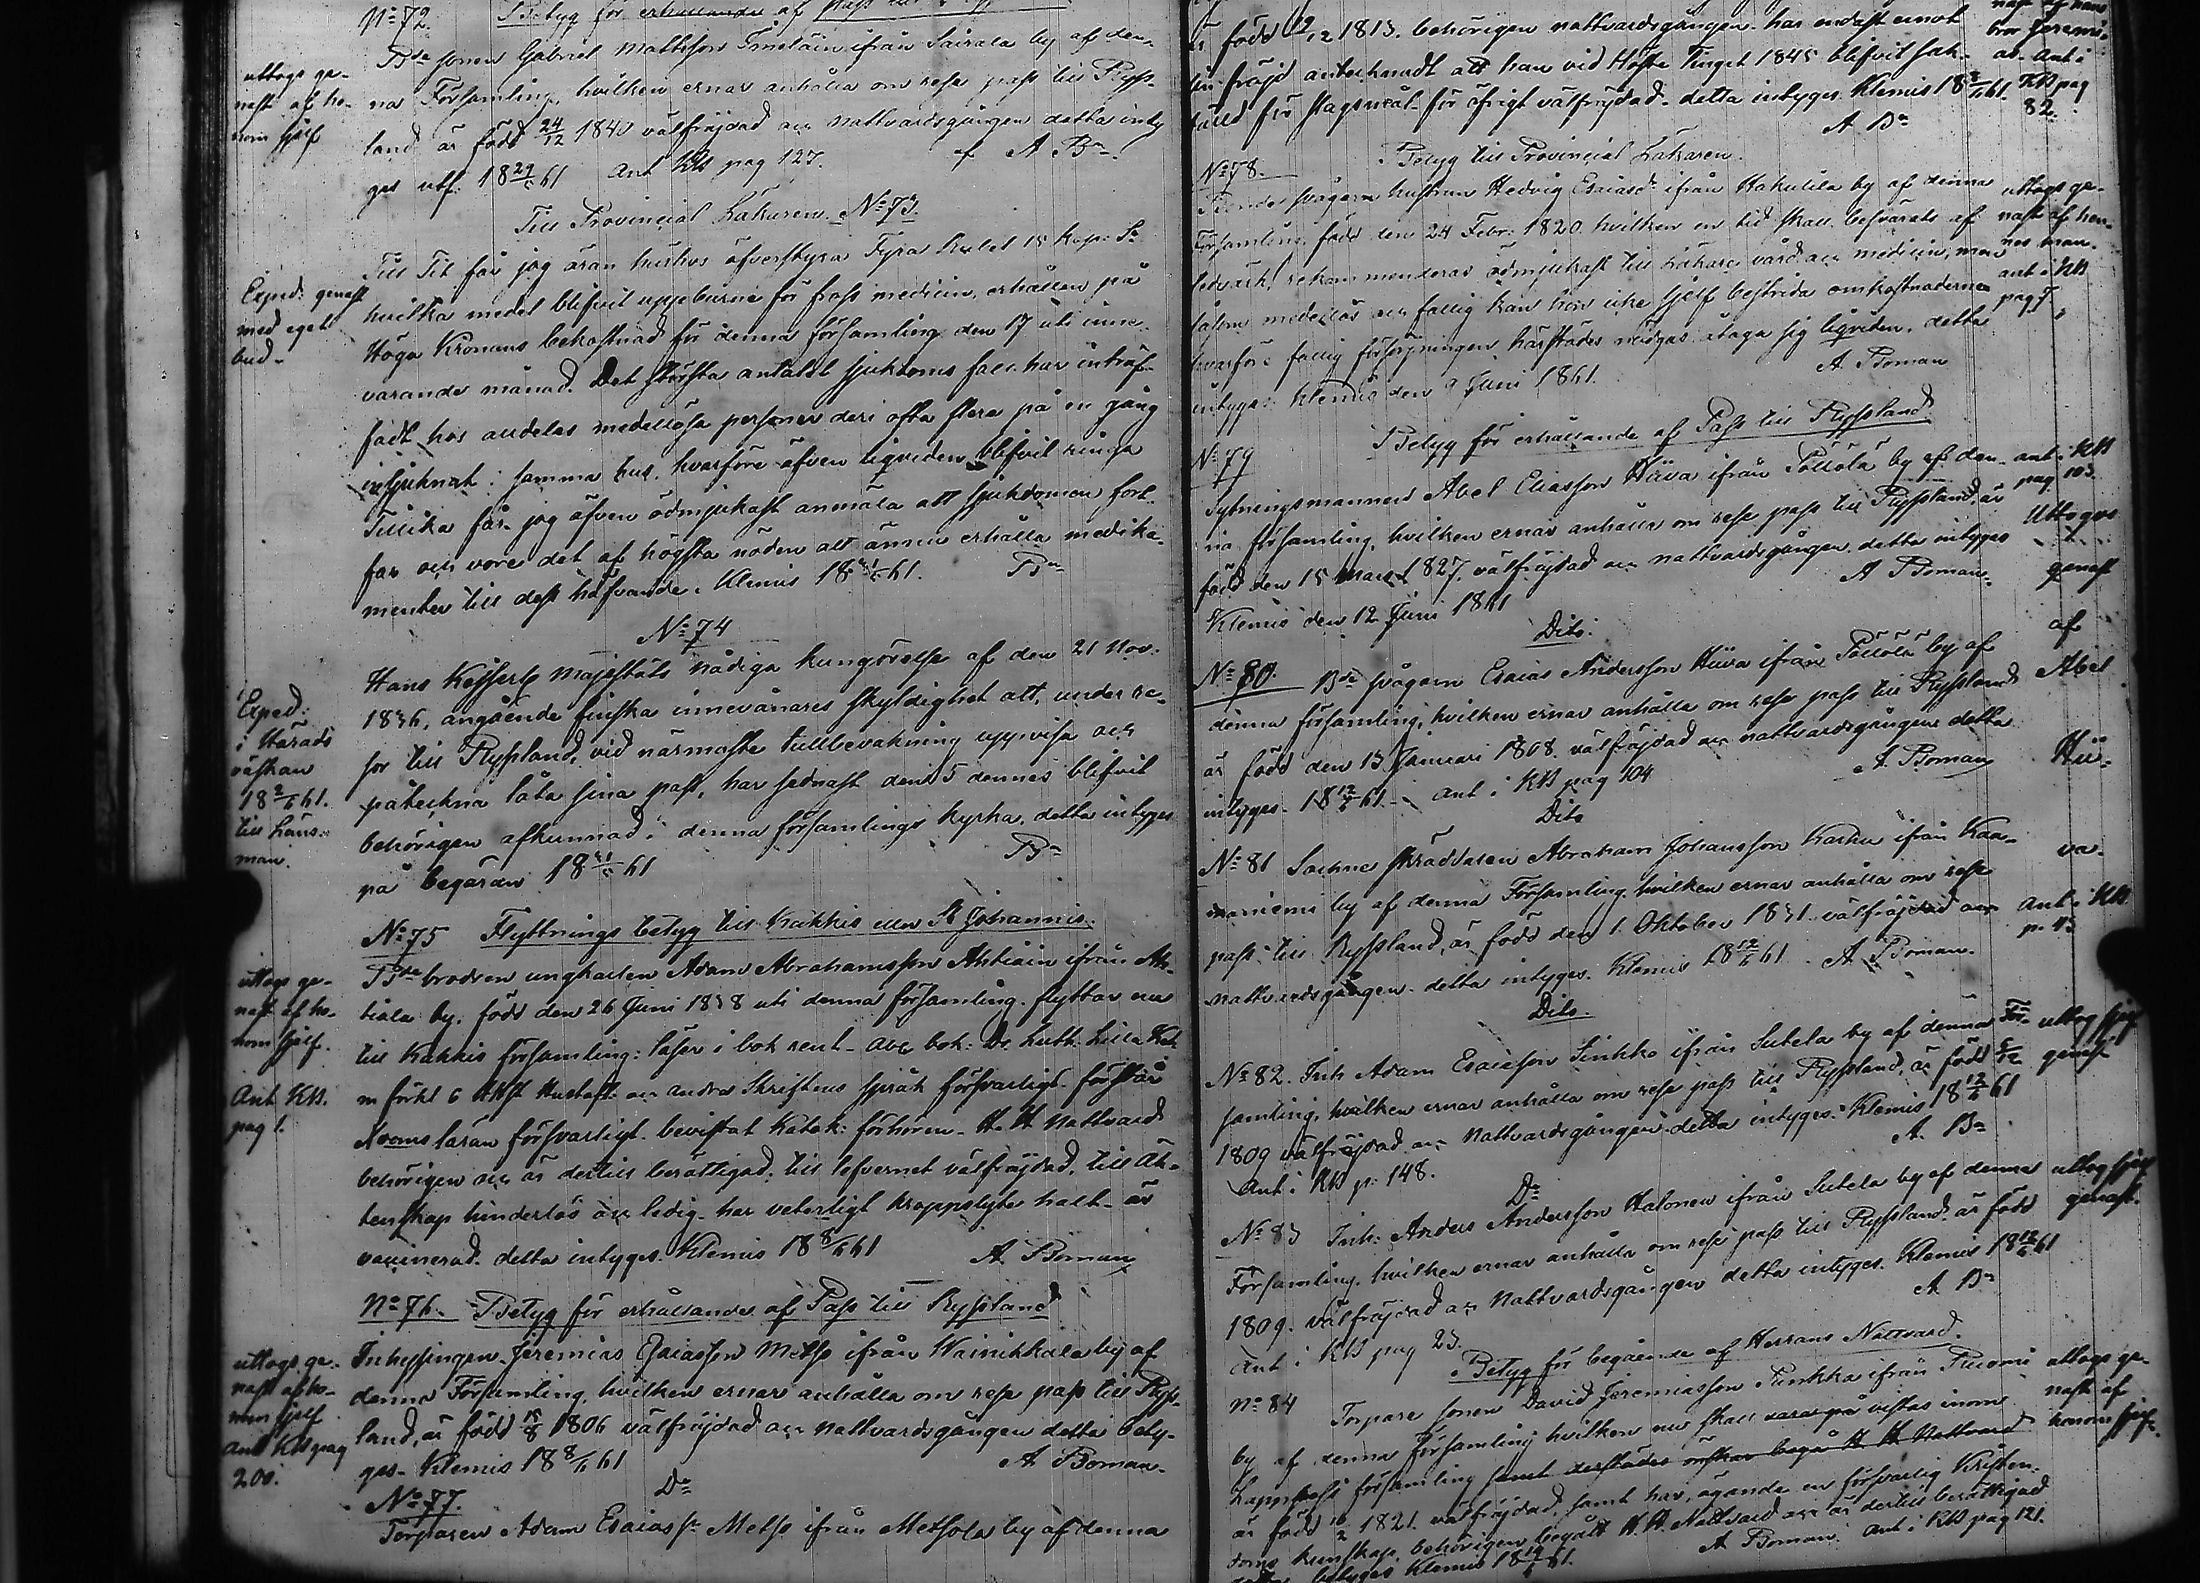 No 72. Betyg för erhållande af pass till
Bde sonen Gabriel Mattsson Imeläin ifrån Sairala by af den-
na Församling, hvilken ernar anhålla om rese pass till Ryss-
land är född 24/12 1840 välfrejdad och nattvardsgången detta inty
ges utf. 18 29/5 61 Ant KB pag 127. A Bn
uttogs ge-
nast af ho-
nom sjelf
Till Provincial Läkaren. No 73.
Till Tit får jag äran härhos öfverstyra Fyra Rubel 15 kop: Sr
hvilka medel blifvit uppeburne för frass medicin, erhållen på
Höga Kronans bekostnad för denna församling den 17 uti inne-
varande månad. Det största antalet sjukdoms fall har inträf-
fadt hos andeles medellösa personer deri ofta flera på en gång
insjuknat i samma hus, hvarföre äfven liqviden blifvit ringa
Tillika får jag äfven ödmjukast anmäla att sjukdomen fort-
far och vore det af högsta nöden att ännu erhålla medika-
menter till dess häfvande. Klemis 18 31/5 61. Bn
Exped: genast
med eget
bud-
No 74
Hans Kejserlg Majestäts nådiga kungörelse af den 21 Nov:
1836, angående finska innevånares skyldighet att, under re-
sor till Ryssland, vid närmaste tullbevakning uppvisa och
påteckna låta sina pass, har sednast den 5 dennes blifvit
behörigen afkunnad i denna församlings kyrka, detta intyges
på begäran 18 31/5 61 Bn
Exped:
i Härads
väskan
18 2/6 61.
till Läns-
man.
No 75 Flyttnings betyg till Kakkis eller St Johannis.
Bde brodren ungkarlen Adam Abrahamsson Ahtiäin ifrån Ah-
tiala by, född den 26 Juni 1838 uti denna församling, flyttar nu
till Kakkis församling: läser i bok rent- abc bok: Dr Luth: Lilla Kat
m förkl 6 HKst Hustafl: och andra Skriftens språk försvarligt- förstår
Xdoms läran försvarligt. bevistat Katek: förhören- H. H Nattvard
behörigen och är dertill berättigad, till lefvernet välfrejdad, till äk-
tenskap hinderlös och ledig- har veterligt kroppslyte halt- är
vaccinerad. detta intyges. Klemis 18 8/6 61 A. Boman
uttogs ge-
nast af ho-
nom sjelf.
Ant KB.
pag 1.
No 76. Betyg för erhållande af Pass till Ryssland
Inhysingen Jeremias Esaiasson Metso ifrån Wainikkala by af
denna Församling, hvilken ernar anhålla om rese pass till Ryss-
land, är född 15/8 1806 välfrejdad och nattvardsgången detta bety-
ges- Klemis 18 8/6 61 A Boman-
uttogs ge-
nast af ho-
nom sjelf
Ant KB pag
200.
No 77. Do
Torparen Adam Esaiass: Metso ifrån Metsola by af denna
är född 2/12 1813. behörigen nattvardsgången. har endast emot
sin frejd antecknadt att han vid Höste Tinget 1845 blifvit sak-
fälld för slagsmål- för öfrigt välfrejdad- detta intyges. Klemis 18 8/6 61.
A Bn
nast af hans
bror Jeremi-
as- Ant i
KB pag
82.
No 78. Betyg till Provincial Läkaren.
Bonde svågern hustrun Hedvig Esaiasdr ifrån Hakulila by af denna
Församling född den 24 Febr: 1820. hvilken en tid skall besvärats af
rekommenderas ödmjukast till läkare vård och medicin, men
såsom medellös och fattig kan hon icke sjelf bestrida omkostnaderna
hvarföre fattig försörjningen härstädes nödgas åtaga sig liqviden. detta
intyges. Klemis den 9 Juni 1861. A Boman
uttogs ge-
nast af hen-
nes man.
ant i KB
pag 7
No 79 Betyg för erhållande af Pass till Ryssland
Sytningsmannen Abel Eliasson Hüva ifrån Pöllölä by af den-
na församling, hvilken ernar anhålla om rese pass till Ryssland, är
född den 15 Mars 1827, välfrejdad och nattvardsgången, detta intyges
Klemis den 12 Juni 1861 A Boman.
ant i KB
pag 103
Uttogs
genast
af
Abel
Hü-
va.
Dito.
No 80. Bde svågern Esaias Andersson Hüva ifrån Pöllölä by af
denna församling, hvilken ernar anhålla om rese pass till Ryssland
är född den 13 Januari 1808. välfrejdad och nattvardsgången detta
intyges- 18 12/6 61. ant i KB pag 104 A. Boman
Dito
No 81 Sockne skräddaren Abraham Johansson Karhu ifrån Kaa-
maniemi by af denna Församling, hvilken ernar anhålla om rese
pass till Ryssland, är född den 1. Oktober 1831. välfrejdad och
nattvardsgången- detta intyges. Klemis 18 12/6 61. A Boman.
Ant i KB
p.
Dito.
No 82. Inh: Adam Esaiasson Sinkko ifrån Suttela by af denna För-
samling, hvilken ernar anhålla om rese pass till Ryssland, är född
1809 välfrejdad och Nattvardsgången- detta intyges. Klemis 18 12/6 61
Ant i KB p. 148. A. Bn
uttog sjelf
genast
Do
No 83 Inh: Anders Andersson Halonen ifrån Suttela by af denna
Församling, hvilken ernar anhålla om rese pass till Ryssland är född
1809. välfrejdad och Nattvardsgången detta intyges. Klemis 18 12/6 61
Ant i KB pag 23. A Bn
uttog sjelf
genast.
Betyg för begående af Herrans Nattvard.
No 84 Torpare sonen David Jeremiasson Punkka ifrån Ruomi
by af denna församling hvilken nu skall vistas inom
Lappvesi församling samt derstädes önskar begå H. H Nattvard
är född 1821. välfrejdad, samt har, ägande en försvarlig Kristen-
doms kunskap, behörigen begått H. H. Nattvard och är dertill berättigad
detta betyges Klemis 18 61. A Boman. ant i KB pag 121.
uttogs ge-
nast af
honom sjelf.